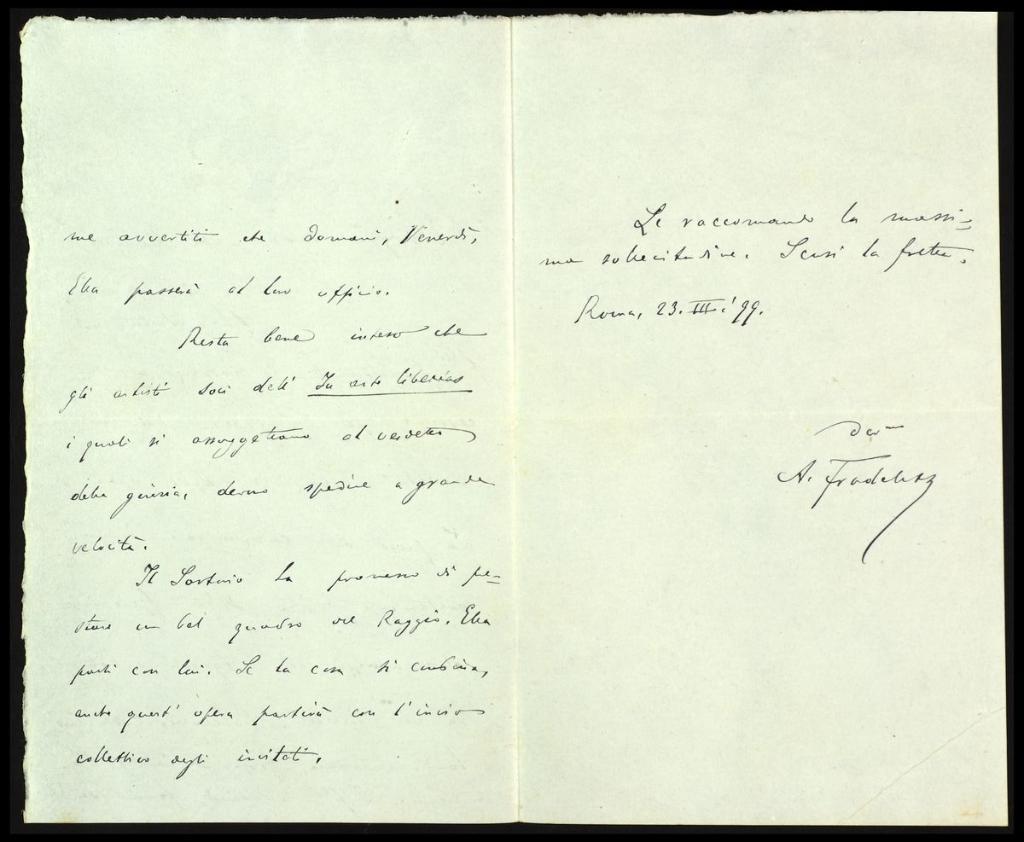 me avvertiti che domani, Venerdì,
Ella passerà al loro ufficio.
Resta bene inteso che
gli artisti soci dell' In arte libertas
i quali si assoggettano al verdetto
della giuria, devono spedire a grande
velocità.
Il Sartorio ha promesso di pre=
stare un bel quadro del Raggio. Ella
parli con lui. Se la cosa si combina,
anche quest' opera partirà con l'invio
collettivo degli invitati.
Le raccomando la massi=
ma sollecitudine. Scusi la fretta.
Roma, 23. III. '99.
dev.mo
A. Fradeletto